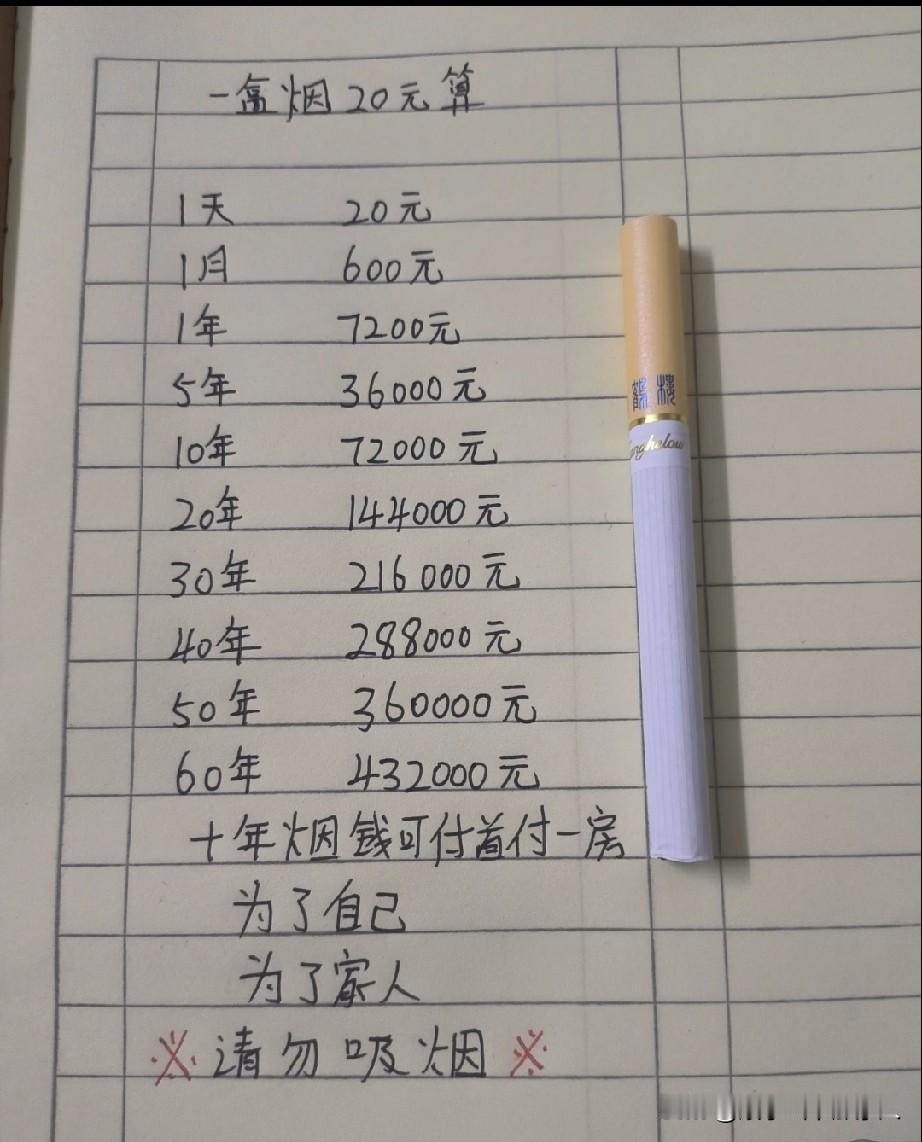 一盒烟20元算
1天 20元
1月 600元
1年 7200元
5年 36000元
10年 72000元
20年 144000元
30年 216000元
40年 288000元
50年 360000元
60年 432000元
十年烟钱可付首付一房
为了自己
为了家人
※请勿吸烟※
鹤楼
anghelou